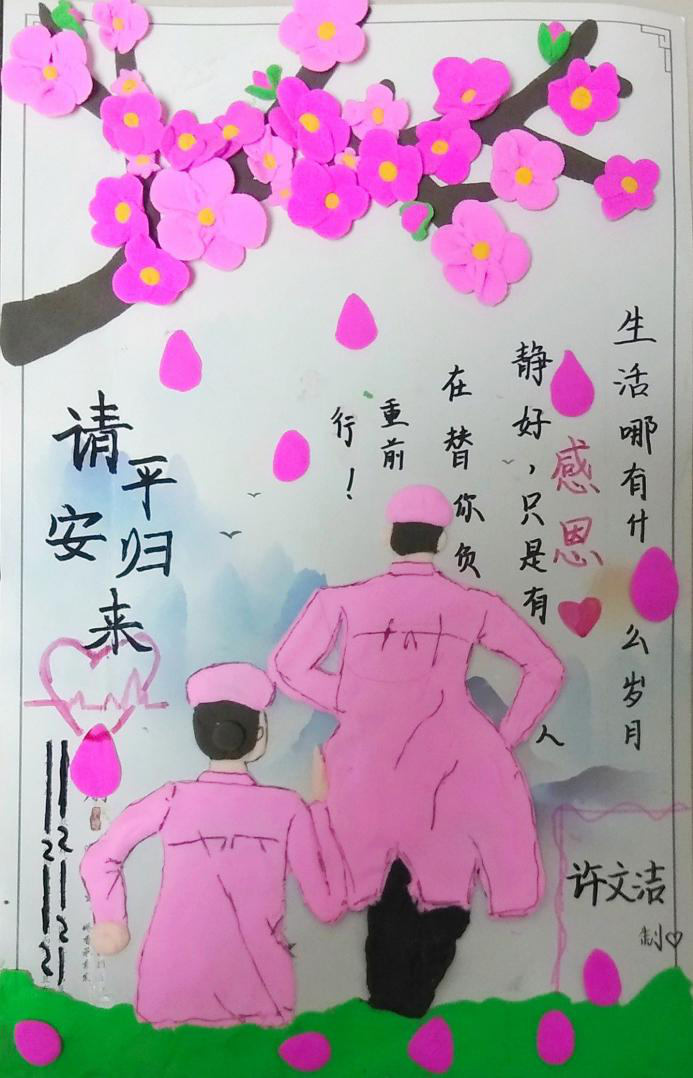 生活哪有什么岁月
静好，只是有人
在替你负
重前
行！
感恩
请平安归来
许文洁
制